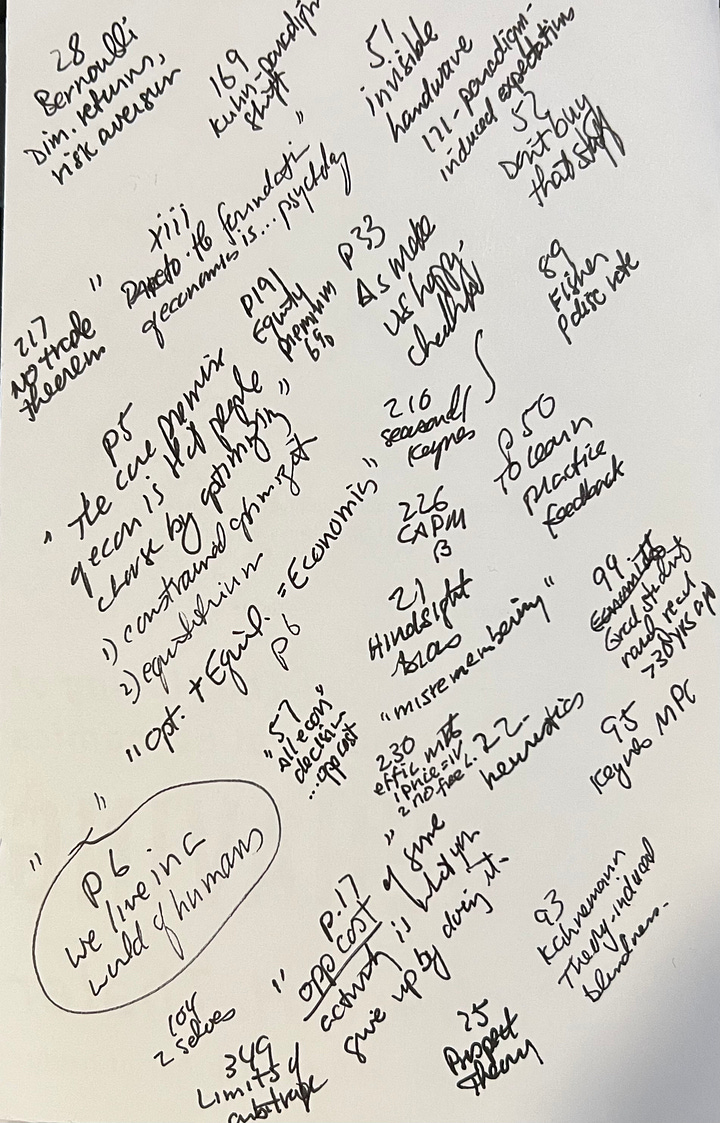 28
Bernoulli
Dim. returns,
risk aversion
169
Kuhn-paradigm
shift
51
invisible
handwave
171-paradigm-
induced expectations
52
Don't buy
that stuff
xiii
" Pareto-the foundati
of economics is... psychology "
217
No trade
theorem
P191
Equity
premium
6%
P33
As make
us happy-
89
Fisher
polite
P5
" The core premise
of econ is that people
choose by optimizing "
1) constrained optimization
2) equilibrium
"Opt. + Equil. = Economics"
P6
210
Seasonal/
Keynes
P50
To learn
Practice
feedback
226
CAPM
β
21
Hindsight
bias
"misremembering"
99
Grad student
>30 yrs ago
57
"All econ"
decision
...opp cost
230
effic mkts
1 Price=IV
2 no free L.
22-
heuristics
95
Keynes MPC
" "
P6
We live in a
world of humans
P.17
" opp cost of some
activity is what you
give up by doing it. "
93
Kahnemann
Theory-induced
blindness-
104
2 selves
349
Limits of
arbitrage
25
Prospect
Theory